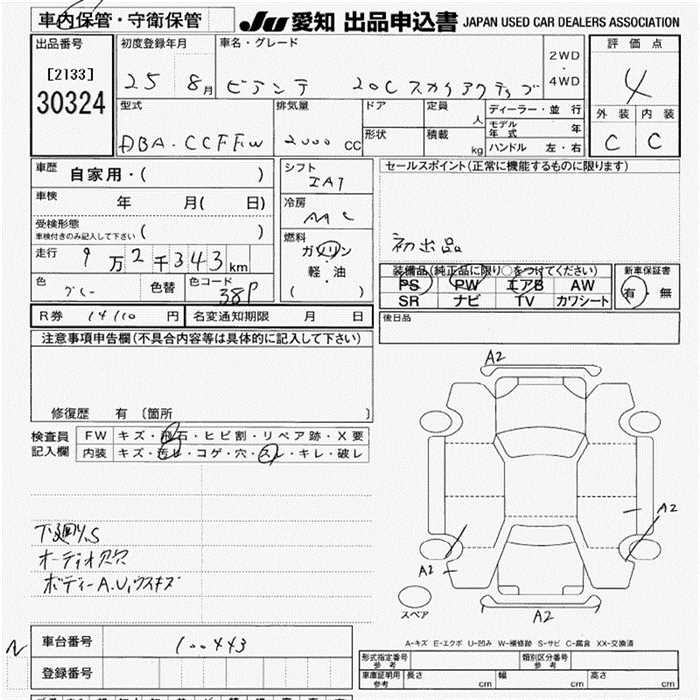 車内保管・守衛保管 JU 愛知 出品申込書 JAPAN USED CAR DEALERS ASSOCIATION
出品番号 初度登録年月 車名・グレード 2WD・4WD 評価点
[2133]
30324
25 8月 ビアンテ 20C スカイアクティブ 4
型式 排気量 ドア 定員 人 ディーラー・並行 外装 内装
DBA-CCFFW 2000 cc 形状 積載 kg モデル年式 年 C C
ハンドル 左・右
車歴 自家用・( ) シフト セールスポイント(正常に機能するものに限ります)
IAT
車検 年 月( 日) 冷房
AAC
受検形態 車検付きのみ記入して下さい ( ) 燃料 初出品
走行 9万2千343km ガソリン
軽・油
( )
装備品(純正品に限り○をつけてください) 新車保証書
色 グレー 色替 色コード 38P PS PW エアB AW 有・無
SR ナビ TV カワシート
R券 14110 円 名変通知期限 月 日 後日品
注意事項申告欄(不具合内容等は具体的に記入して下さい)
修復歴 有 〔箇所 〕
検査員記入欄 FW キズ・飛石・ヒビ割・リペア跡・X要
内装 キズ・汚レ・コゲ・穴・スレ・キレ・破レ
A2
A2
A2
A2
下廻りS
オーディオ欠穴
ボディーA.U,ウスキズ
スペア
A-キズ E-エクボ U-凹み W-補修跡 S-サビ C-腐食 XX-交換済
N 車台番号 100443
登録番号
形式指定番号 参考 類別区分番号 参考
車庫証明用 参考 長さ cm 幅 cm 高さ cm